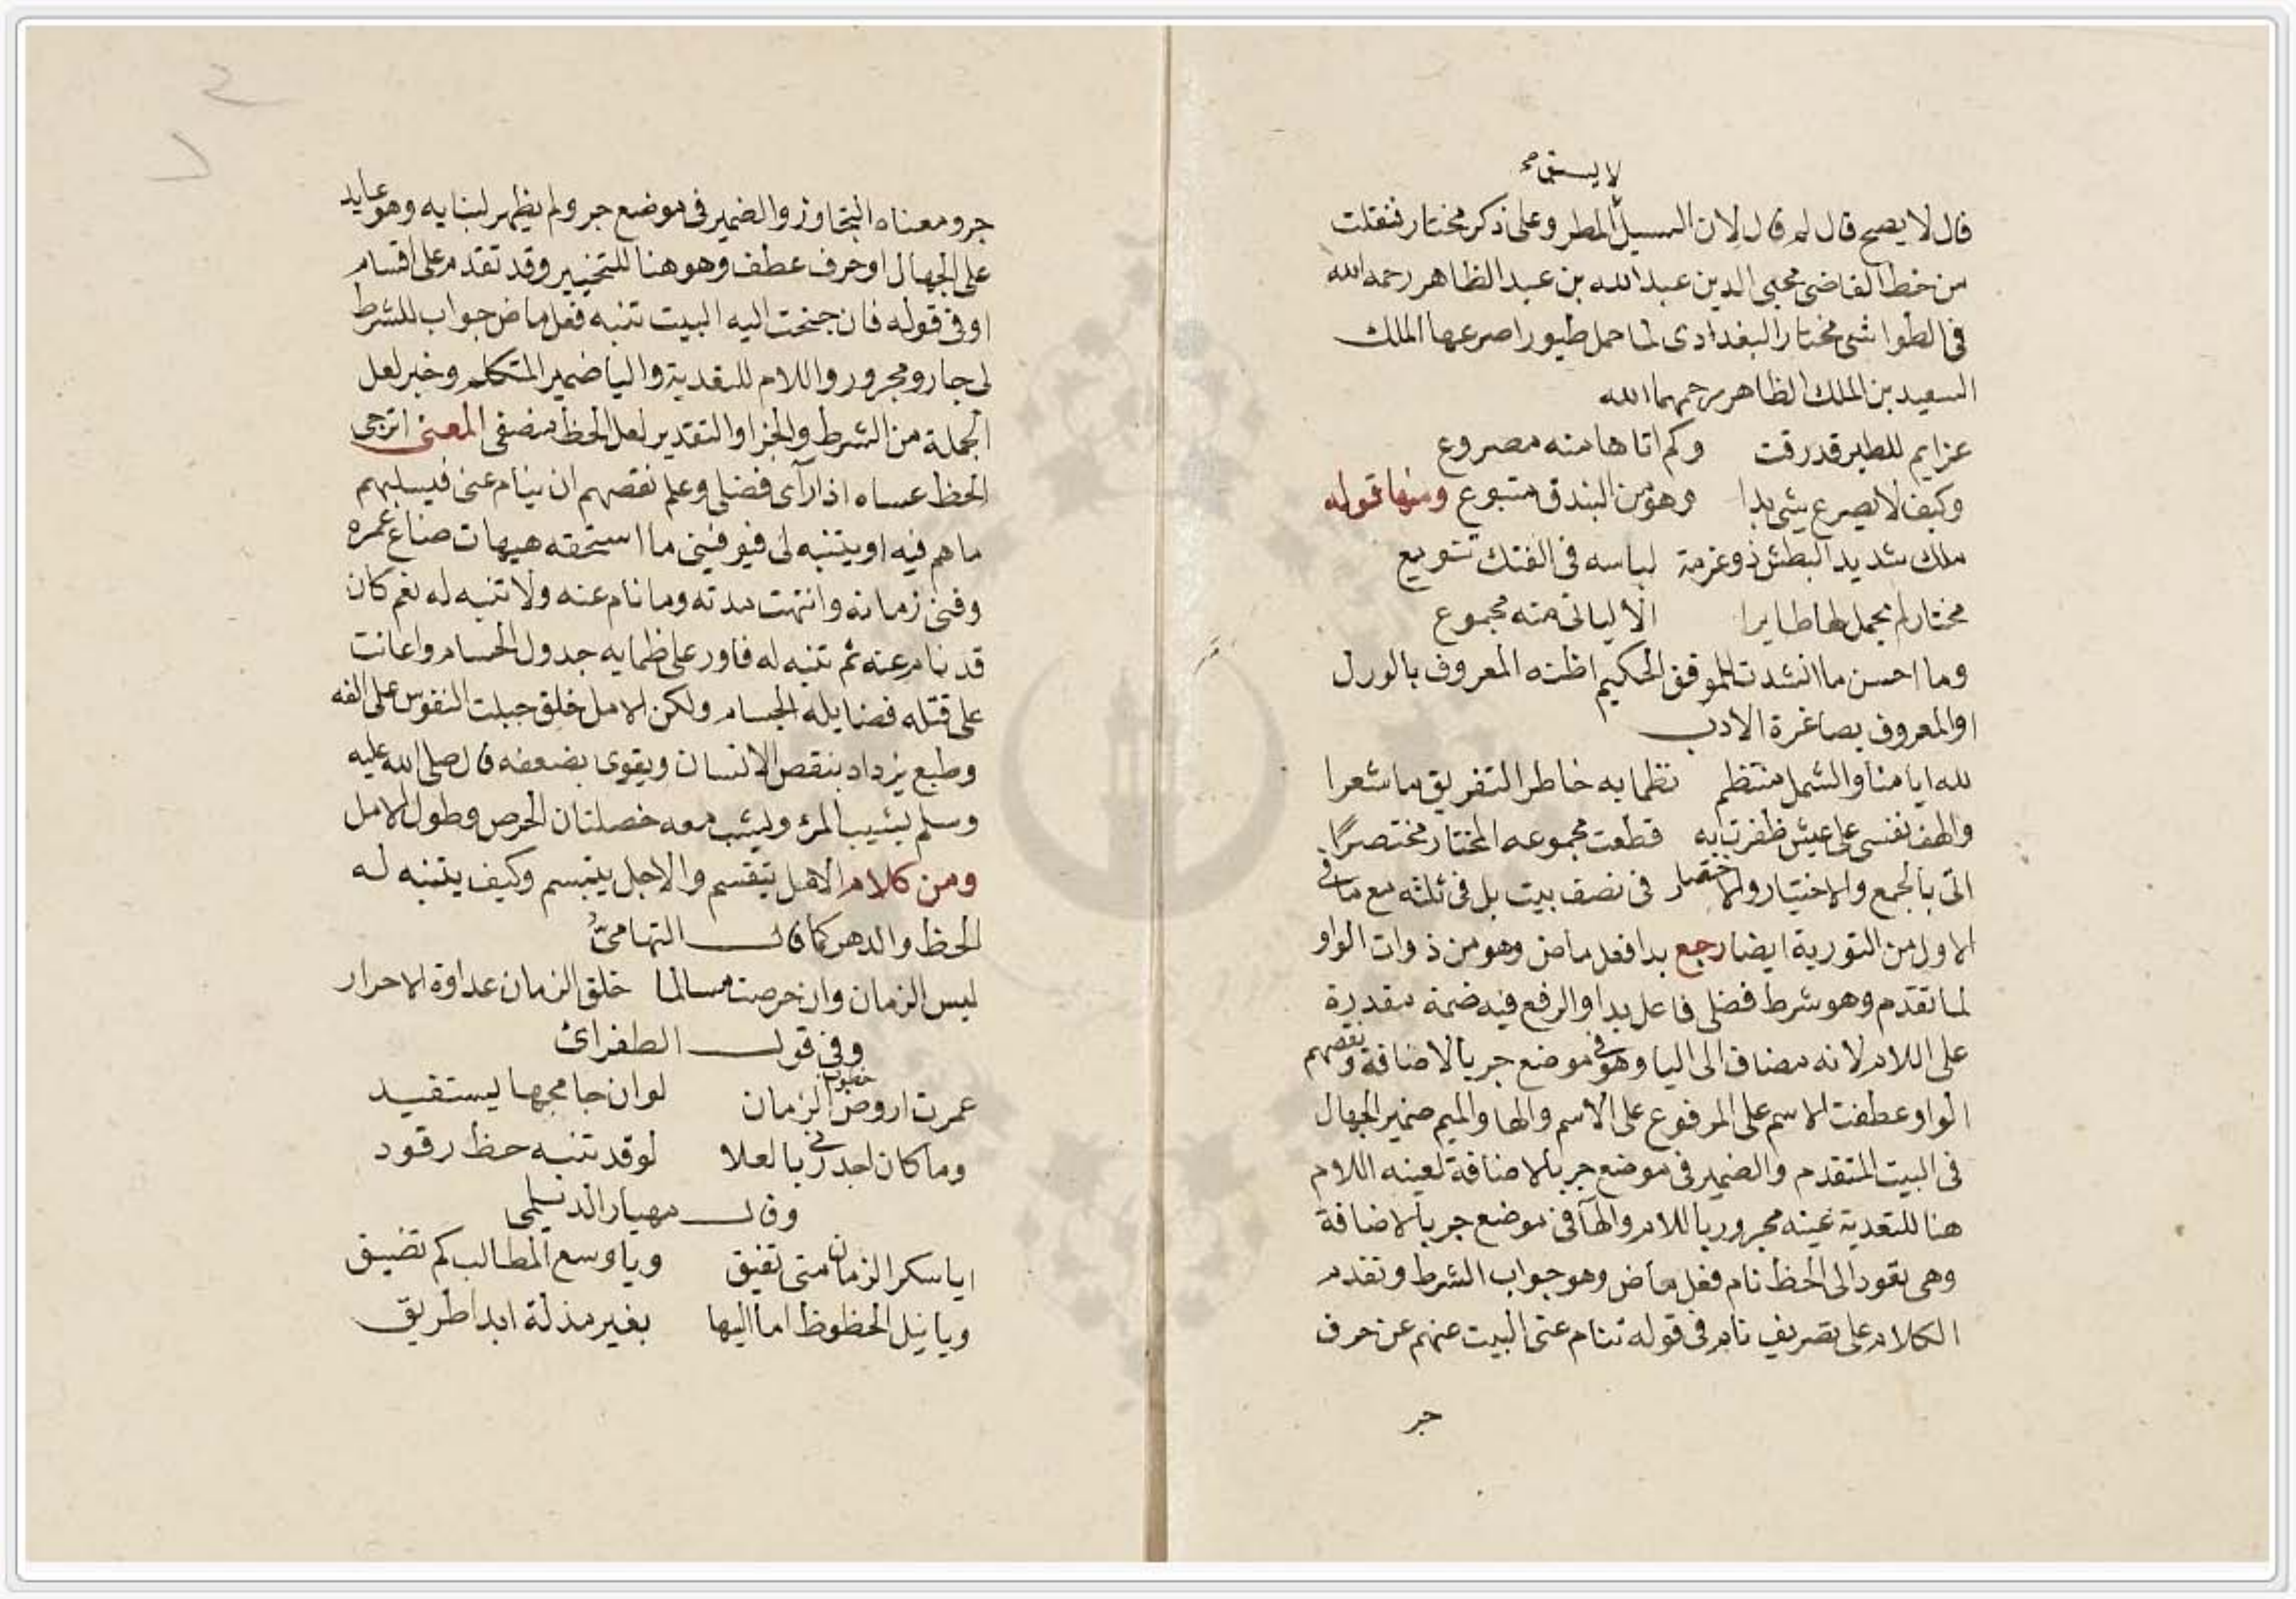 لا يسبق صح
قال لا يصح قال لم قال لان السيل المطر وعلى ذكر مختار فنقلت
من خط القاضى محيى الدين عبد الله بن عبد الظاهر رحمه الله
فى الطواشى مختار البغدادى لما حمل طيورا صرعها الملك
السعيد بن الملك الظاهر رحمهما الله
عزايم للطير قد رقت وكم اتاها منه مصروع
وكيف لا يصرع شى بدا وهو من البندق متبوع ومنها قوله
ملك شديد البطش ذو عزمة لباسه فى الفتك تنويع
مختار لم يحمل لها طايرا الا لياتى منه مجموع
وما احسن ما انشدت للموفق الحكيم اظنه المعروف بالورل
او المعروف بصاغرة الادب
لله ايامنا والشمل منتظم نظما به خاطر التفريق ما شعرا
والهف نفسى على عيش ظفرت به قطعت مجموعه المختار مختصرا
اتى بالجمع والاختيار والاختصار فى نصف بيت بل فى ثلثه مع ما فى
الاول من التورية ايضا رجع بدا فعل ماض وهو من ذوات الواو
لما تقدم وهو شرط فضلى فاعل بدا والرفع فيه ضمة مقدرة
على اللام لانه مضاف الى اليا وهو فى موضع جر بالاضافة ونقصهم
الواو عطفت الاسم على المرفوع على الاسم والها والميم ضمير الجهال
فى البيت المتقدم والضمير فى موضع جر بالاضافة لعينه اللام
هنا للتعدية عينه مجرور باللام والهآ فى موضع جر بالاضافة
وهى تعود الى الحظ نام فعل ماض وهو جواب الشرط وتقدم
الكلام على تصريف نام فى قوله تنام عنى البيت عنهم عن حرف
جر
جر ومعناه التجاوز والضمير فى موضع جر ولم يظهر لبنايه وهو عايد
على الجهال او حرف عطف وهو هنا للتخيير وقد تقدم على اقسام
او فى قوله فان جنحت اليه البيت تنبه فعل ماض جواب للشرط
لى جار ومجرور واللام للتعدية واليا ضمير المتكلم وخبر لعل
الجملة من الشرط والجزا والتقدير لعل الحظ منصفى المعنى اترجى
الحظ عساه اذا رآى فضلى وعلم نقصهم ان ينام عنى فيسلبهم
ما هم فيه او يتنبه لى فيوفينى ما استحقه هيهات ضاع عمره
وفنى زمانه وانتهت مدته وما نام عنه ولا تنبه له نعم كان
قد نام عنه ثم تنبه له فاورد على ظمايه جدول الحسام واعانت
على قتله فضايله الجسام ولكن الامل خلق جبلت النفوس على الفه
وطبع يزداد بنقص الانسان ويقوى بضعفه قال صلى الله عليه
وسلم يشيب المرء ويشب معه خصلتان الحرص وطول الامل
ومن كلام الامل يتقسم والاجل يبتسم وكيف يتنبه له
الحظ والدهر كما قال التهامىّ
ليس الزمان وان حرصت مسالما خلق الزمان عداوة الاحرار
وفى قول الطغرائ
عمرت اروض خطوب الزمان لو ان جامحها يستقيد
وما كان اجدرنى بالعلا لو قد تنبه حظ رقود
وقال مهيار الديلمى
ايا سكر الزمان متى تفيق ويا وسع المطالب كم تضيق
ويا نيل الحظوظ اما اليها بغير مذلة ابدا طريق